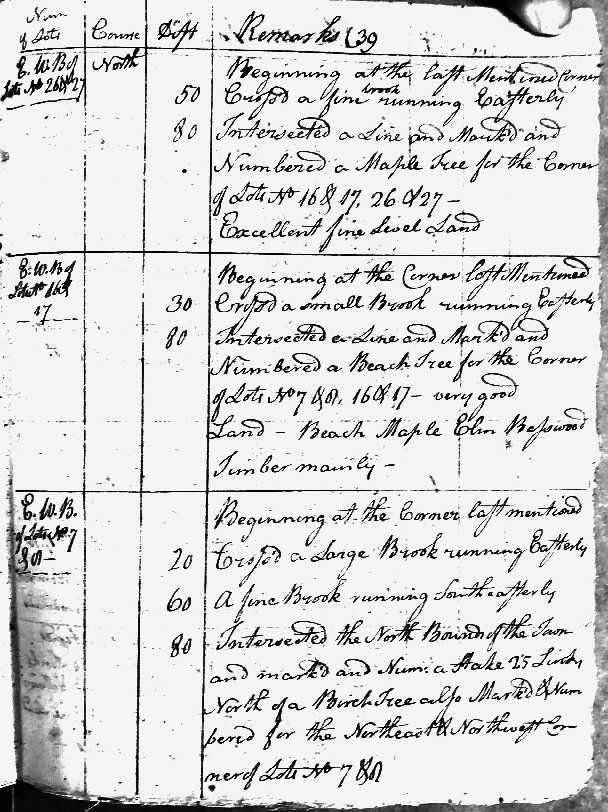 Num of Lots Course Dist Remarks (39
E. W. B of Lots No 26 & 27 North Beginning at the last Mentioned Corner
50 Cross'd a fine brook running Easterly
80 Intersected a Line and Mark'd and
Numbered a Maple Tree for the Corner
of Lots No 16 & 17, 26 & 27 –
Excellent fine Level Land
E. W. B of Lots No 16 & 17 Beginning at the Corner last Mentioned
30 Cross'd a small Brook running Easterly
80 Intersected a Line and Mark'd and
Numbered a Beach Tree for the Corner
of Lots No 7 & 8, 16 & 17 – very good
Land – Beach Maple Elm Basswood
Timber mainly –
E. W. B. of Lots No 7 & 8 – Beginning at the Corner last mentioned
20 Cross'd a Large Brook running Easterly
60 A fine Brook running Southeasterly
80 Intersected the North Bounds of the Town
and mark'd and Num. a Stake 25 Links
North of a Birch Tree also Mark'd & Num
bered for the Northeast & Northwest Cor
ner of Lots No 7 & 8